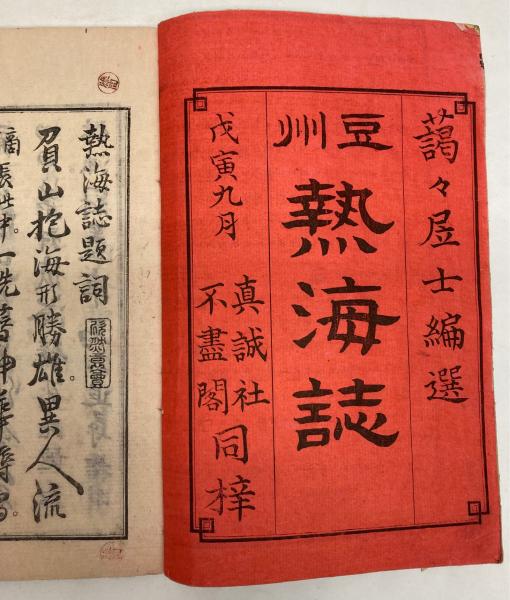 藹々居士編選
豆州
熱海誌
戊寅九月
真誠社
不盡閣
同梓
熱海誌題詞
負山抱海形勝雄。異人流